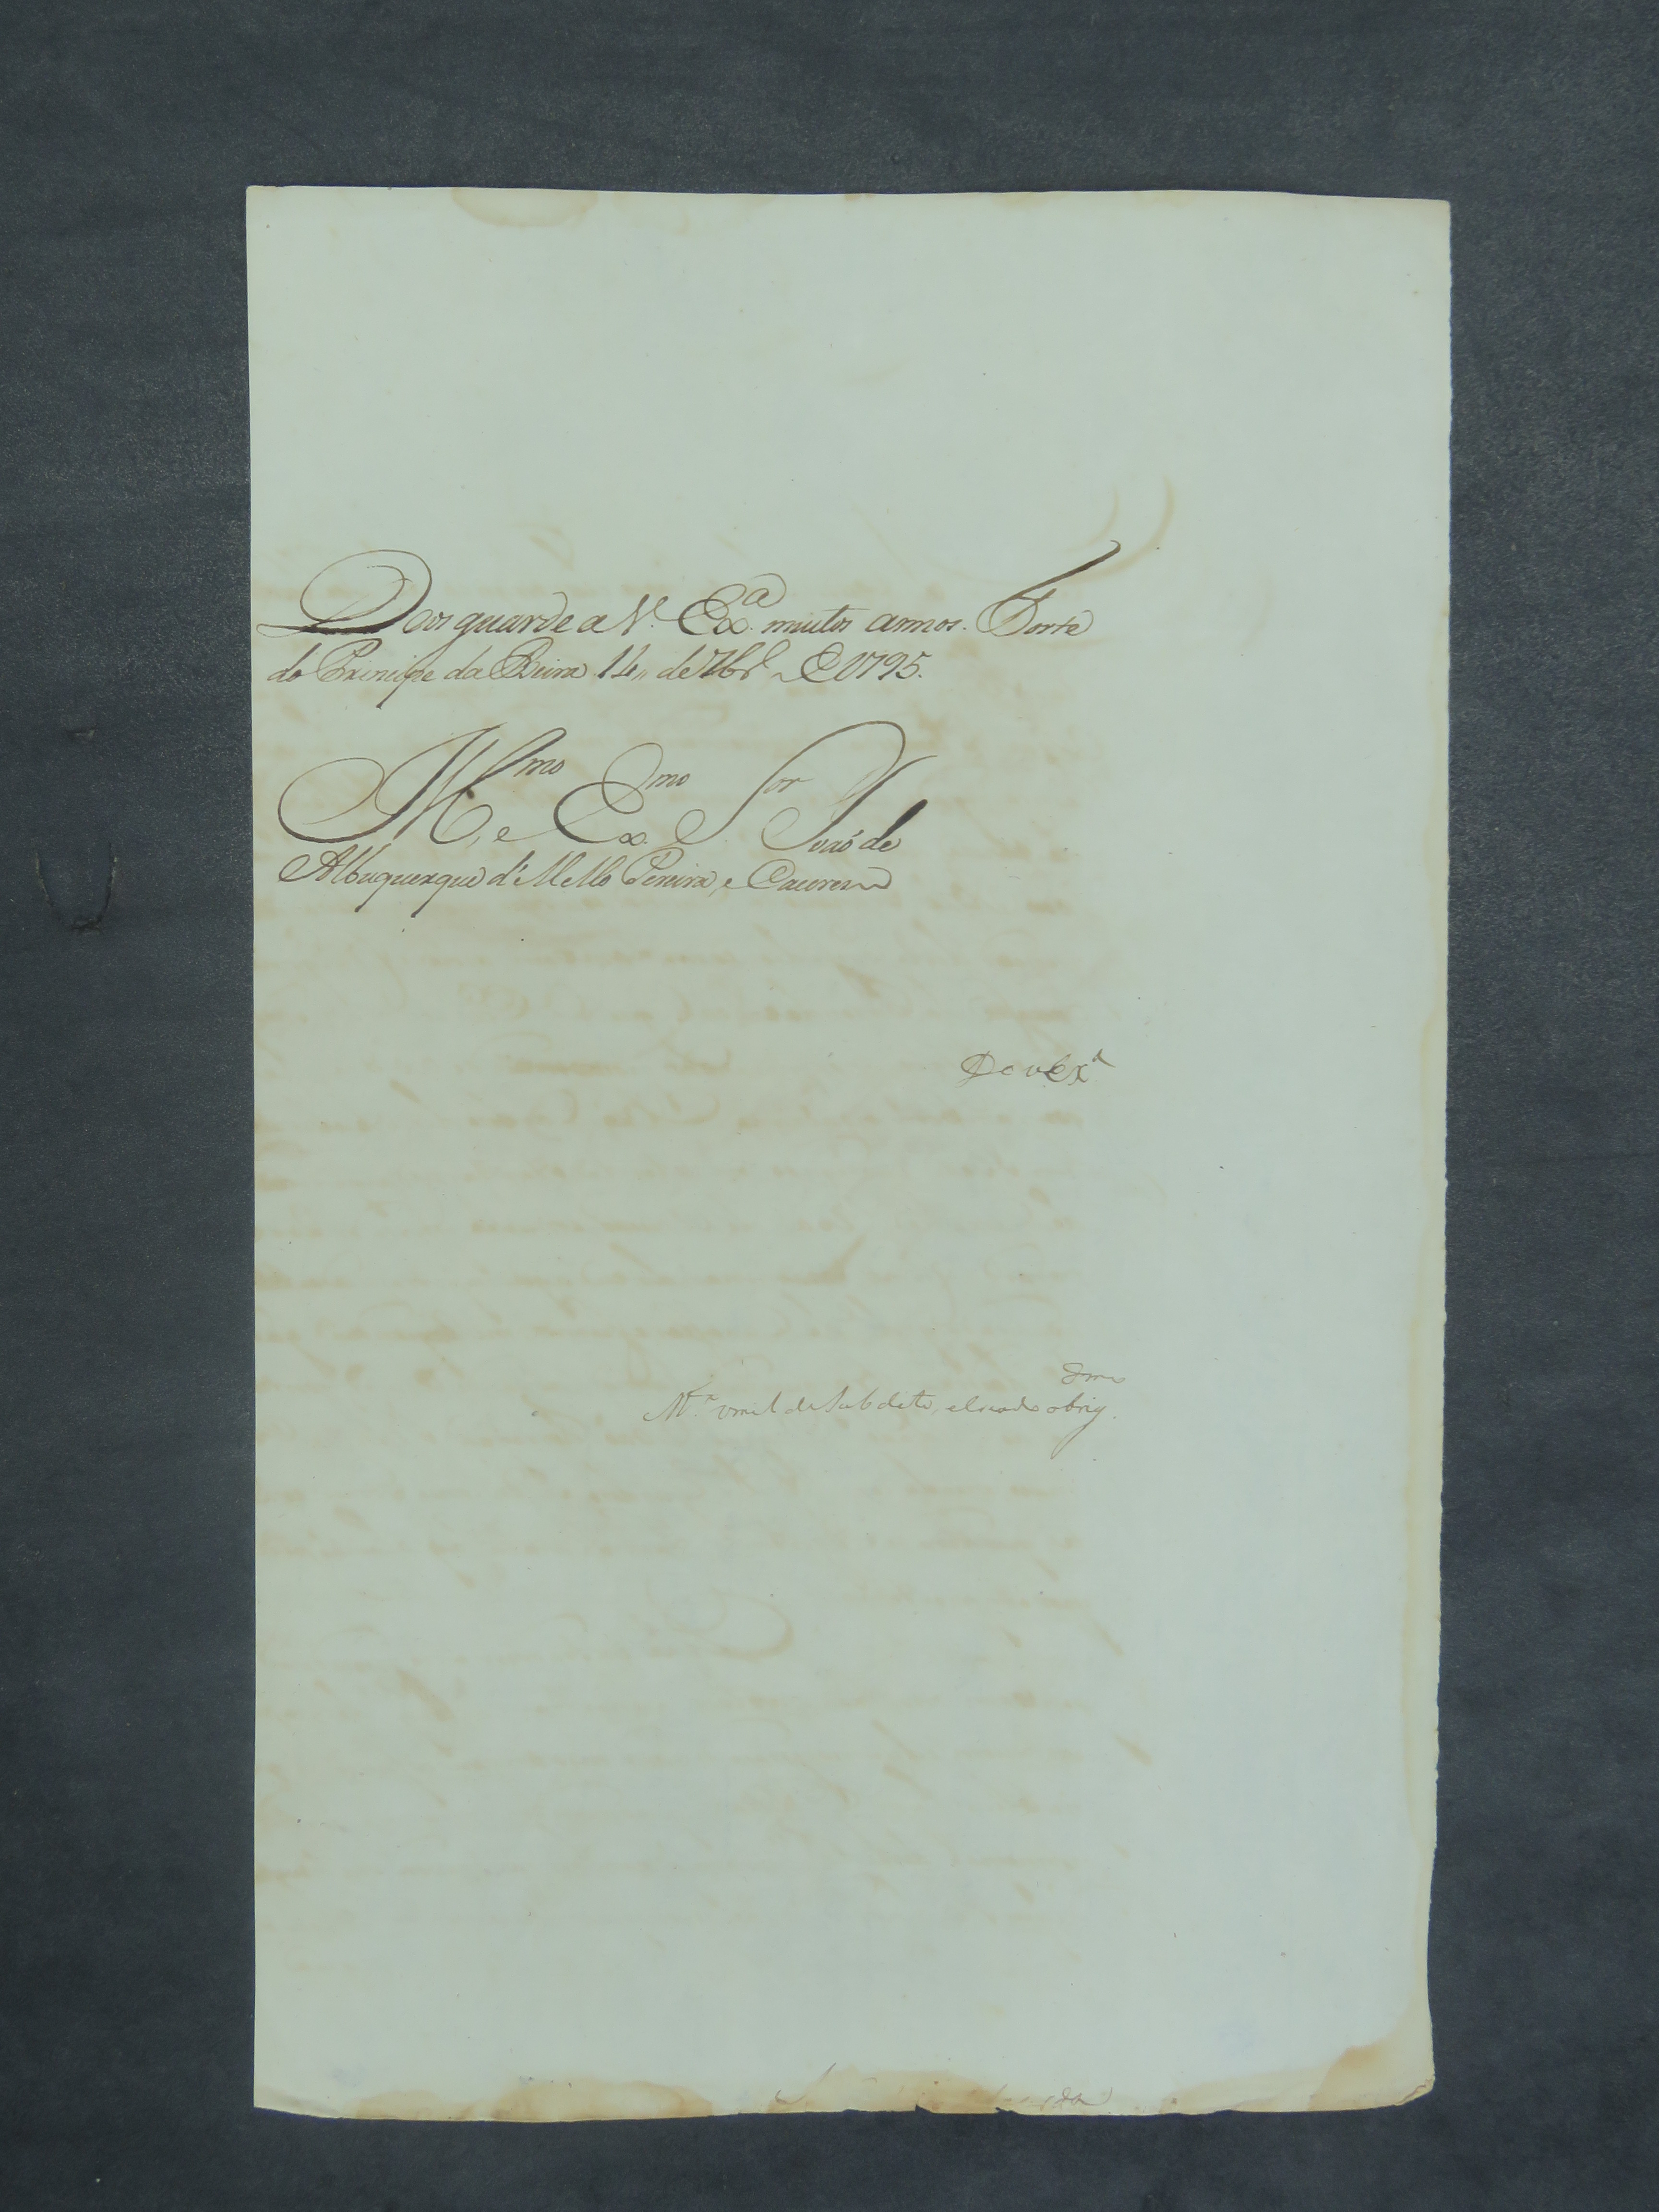 Deos guarde a V. Exª. muitos annos. Forte
do Principe da Beira 14,, de 7br.º de 1795.
Illmo, e Exmo. Sor. Joaó de
Albuquerque d'Mello Pereira, e Caceres
De V Exª
Mtº. umilde Subdito, e criado obrigdmo.